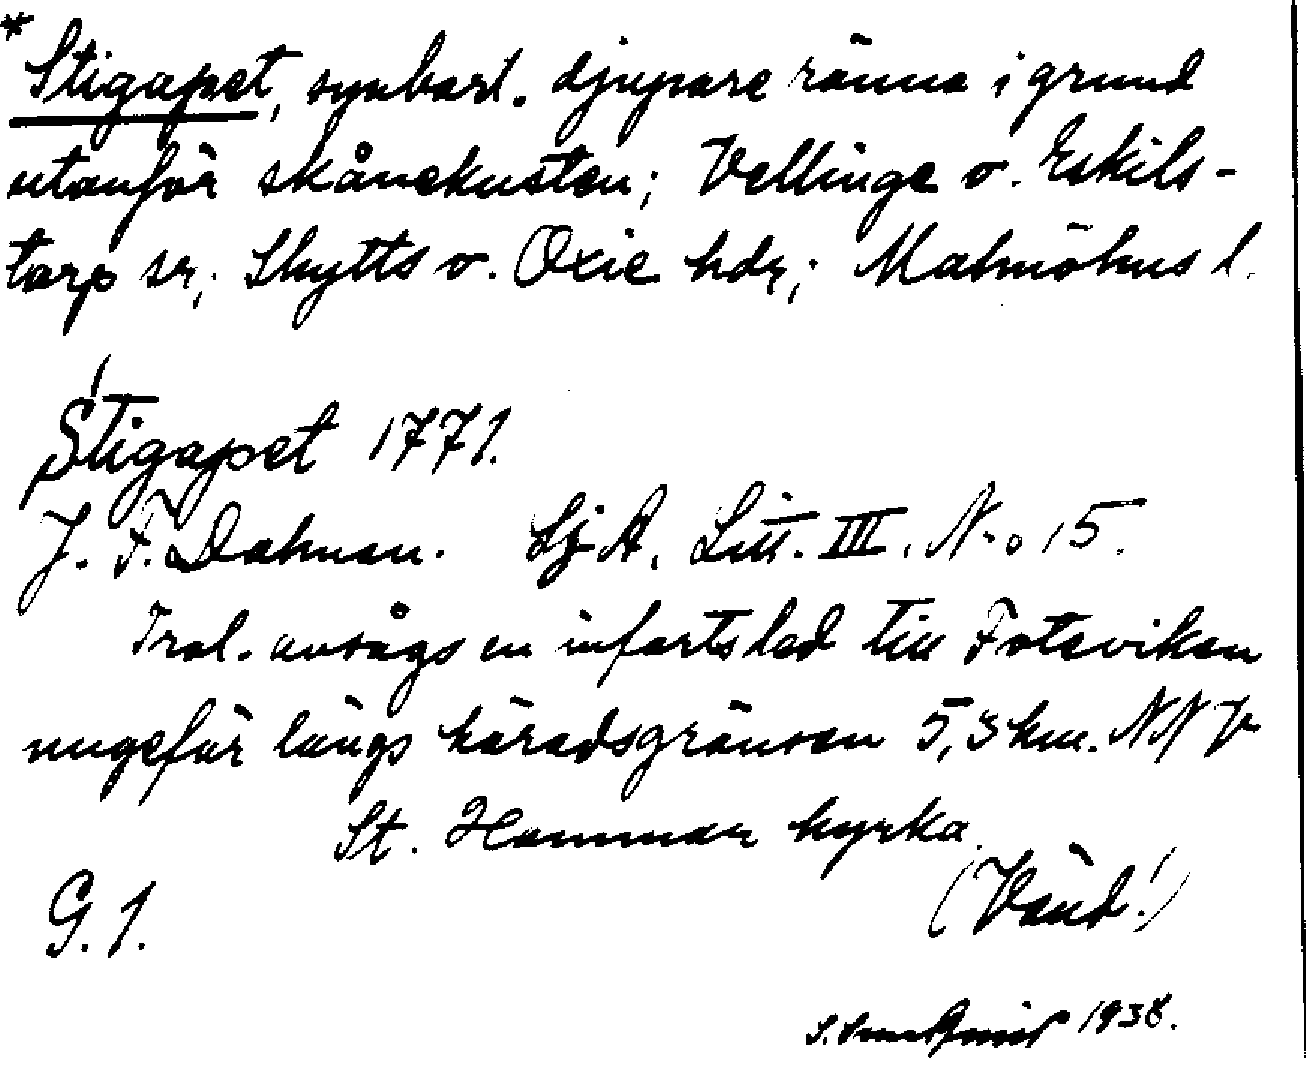 * Stigapet, synbarl. djupare ränna i grund
utanför skånekusten; Vellinge o. Eskils-
torp sr; Skytts o. Oxie hdr; Malmöhus l.
Stigapet 1771.
J. F. Dahman. Sj A, Litt. III. No 15.
Trol. avsågs en infartsled till Foteviken
ungefär längs häradsgränsen 5,3 km. NNV
St. Hammar kyrka.
(Vänd!)
G. 1.
1938.